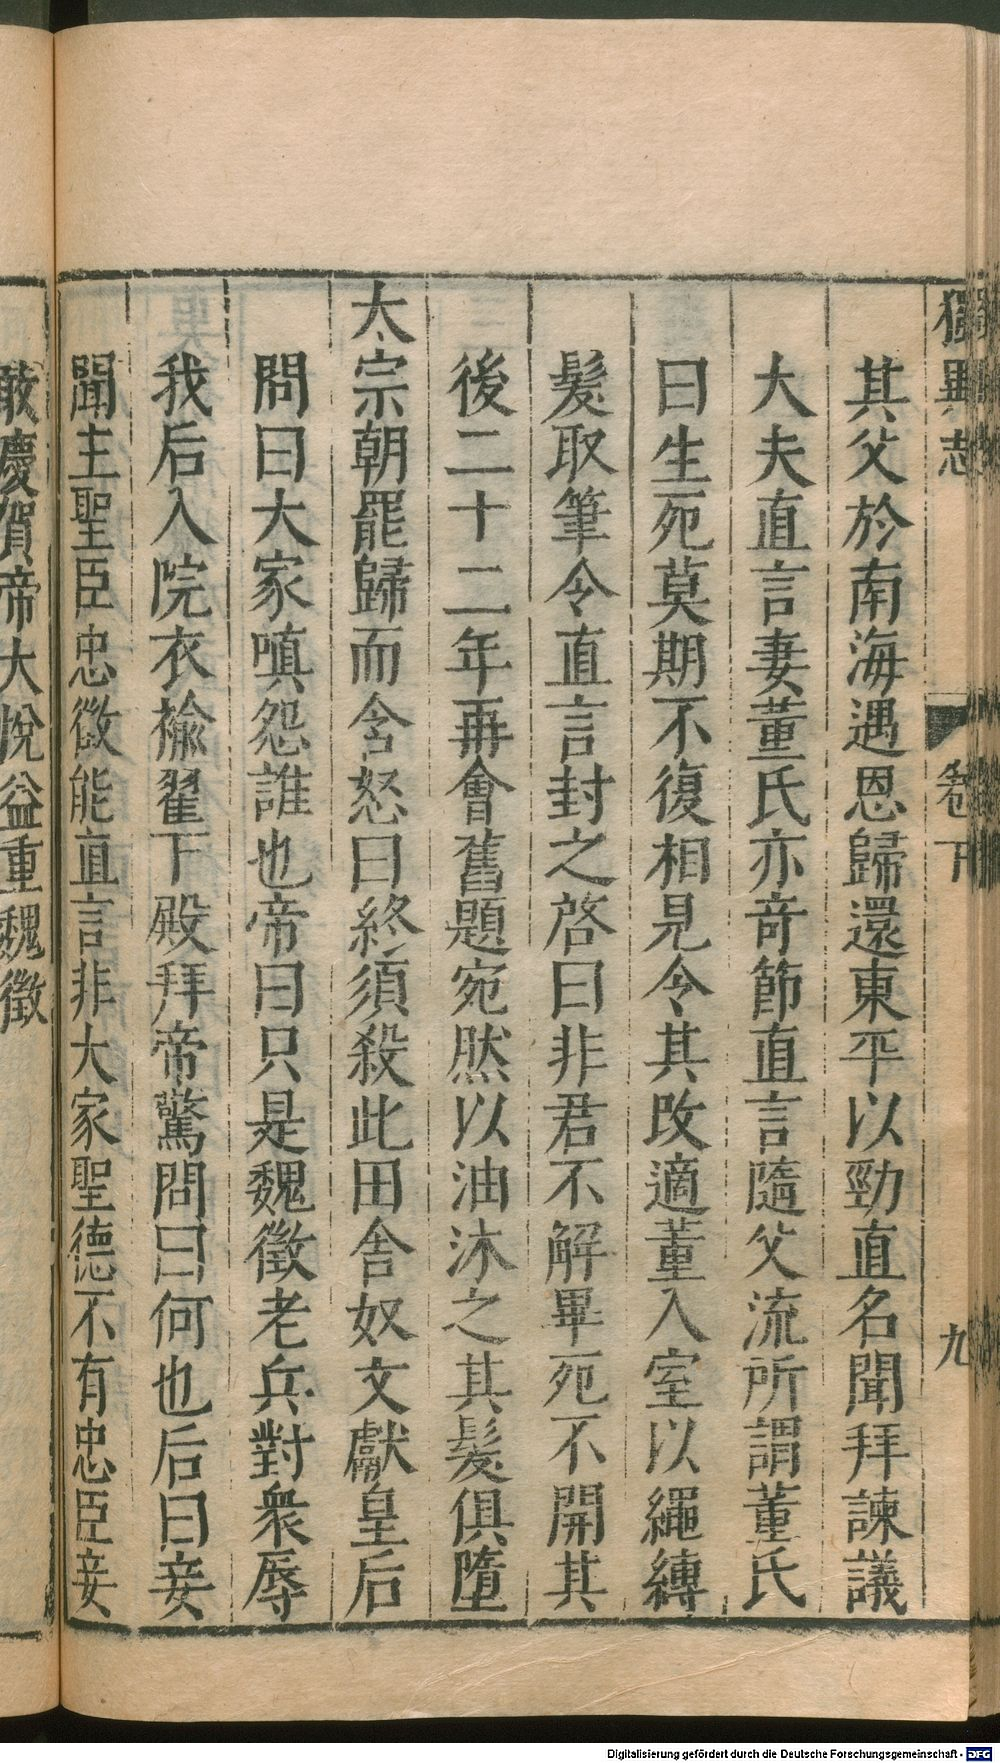 獨異志 卷下 九
其父於南海遇恩歸還東平以勁直名聞拜諫議
大夫直言妻董氏亦竒節直言隨父流所謂董氏
曰生死莫期不復相見令其改適董入室以繩縛
髮取筆令直言封之啓曰非君不解畢死不開其
後二十二年再會舊題宛然以油沐之其髮俱墮
太宗朝罷歸而含怒曰終須殺此田舍奴文獻皇后
問曰大家嗔怨誰也帝曰只是魏徵老兵對衆辱
我后入院衣褕翟下殿拜帝驚問曰何也后曰妾
聞主聖臣忠徵能直言非大家聖德不有忠臣妾
敢慶賀帝大悅益重魏徵
Digitalisierung gefördert durch die Deutsche Forschungsgemeinschaft - DFG